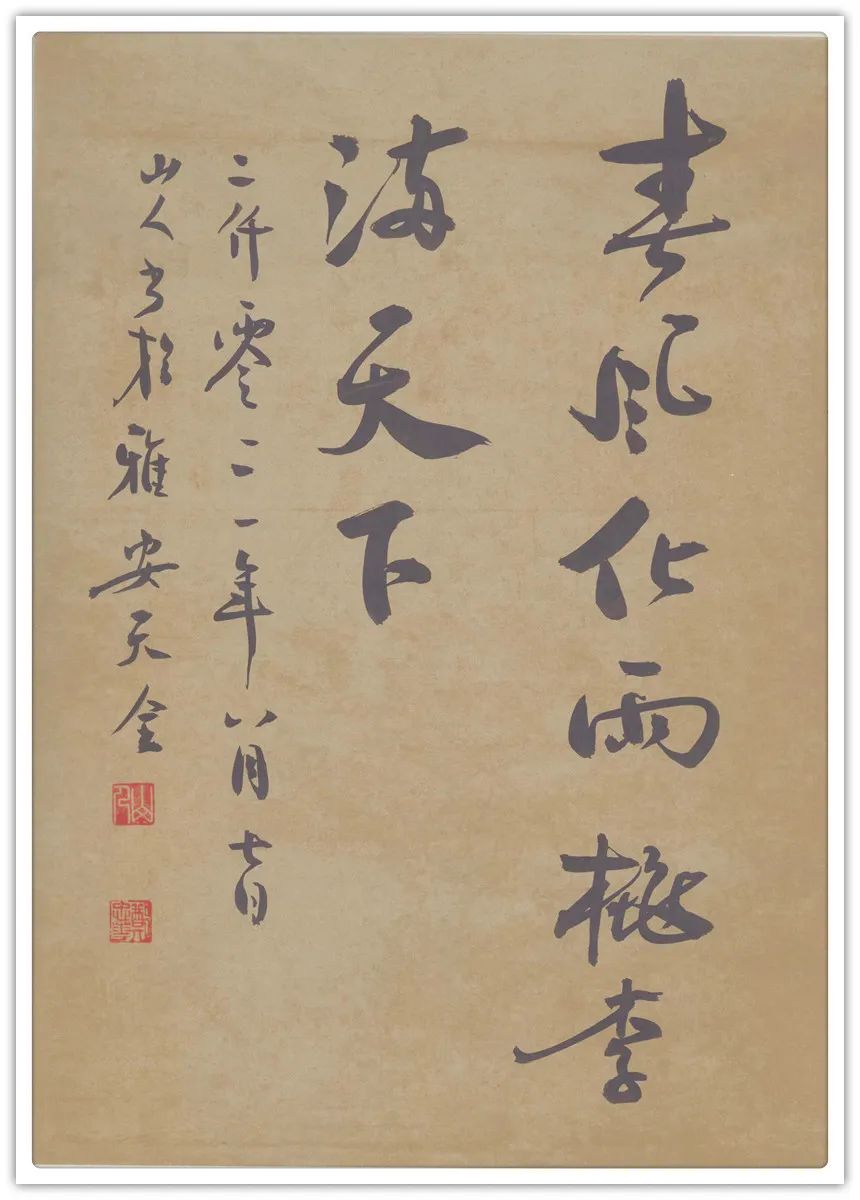 春风化雨桃李
满天下
二仟零二一年八月七日
山人书於雅安天全